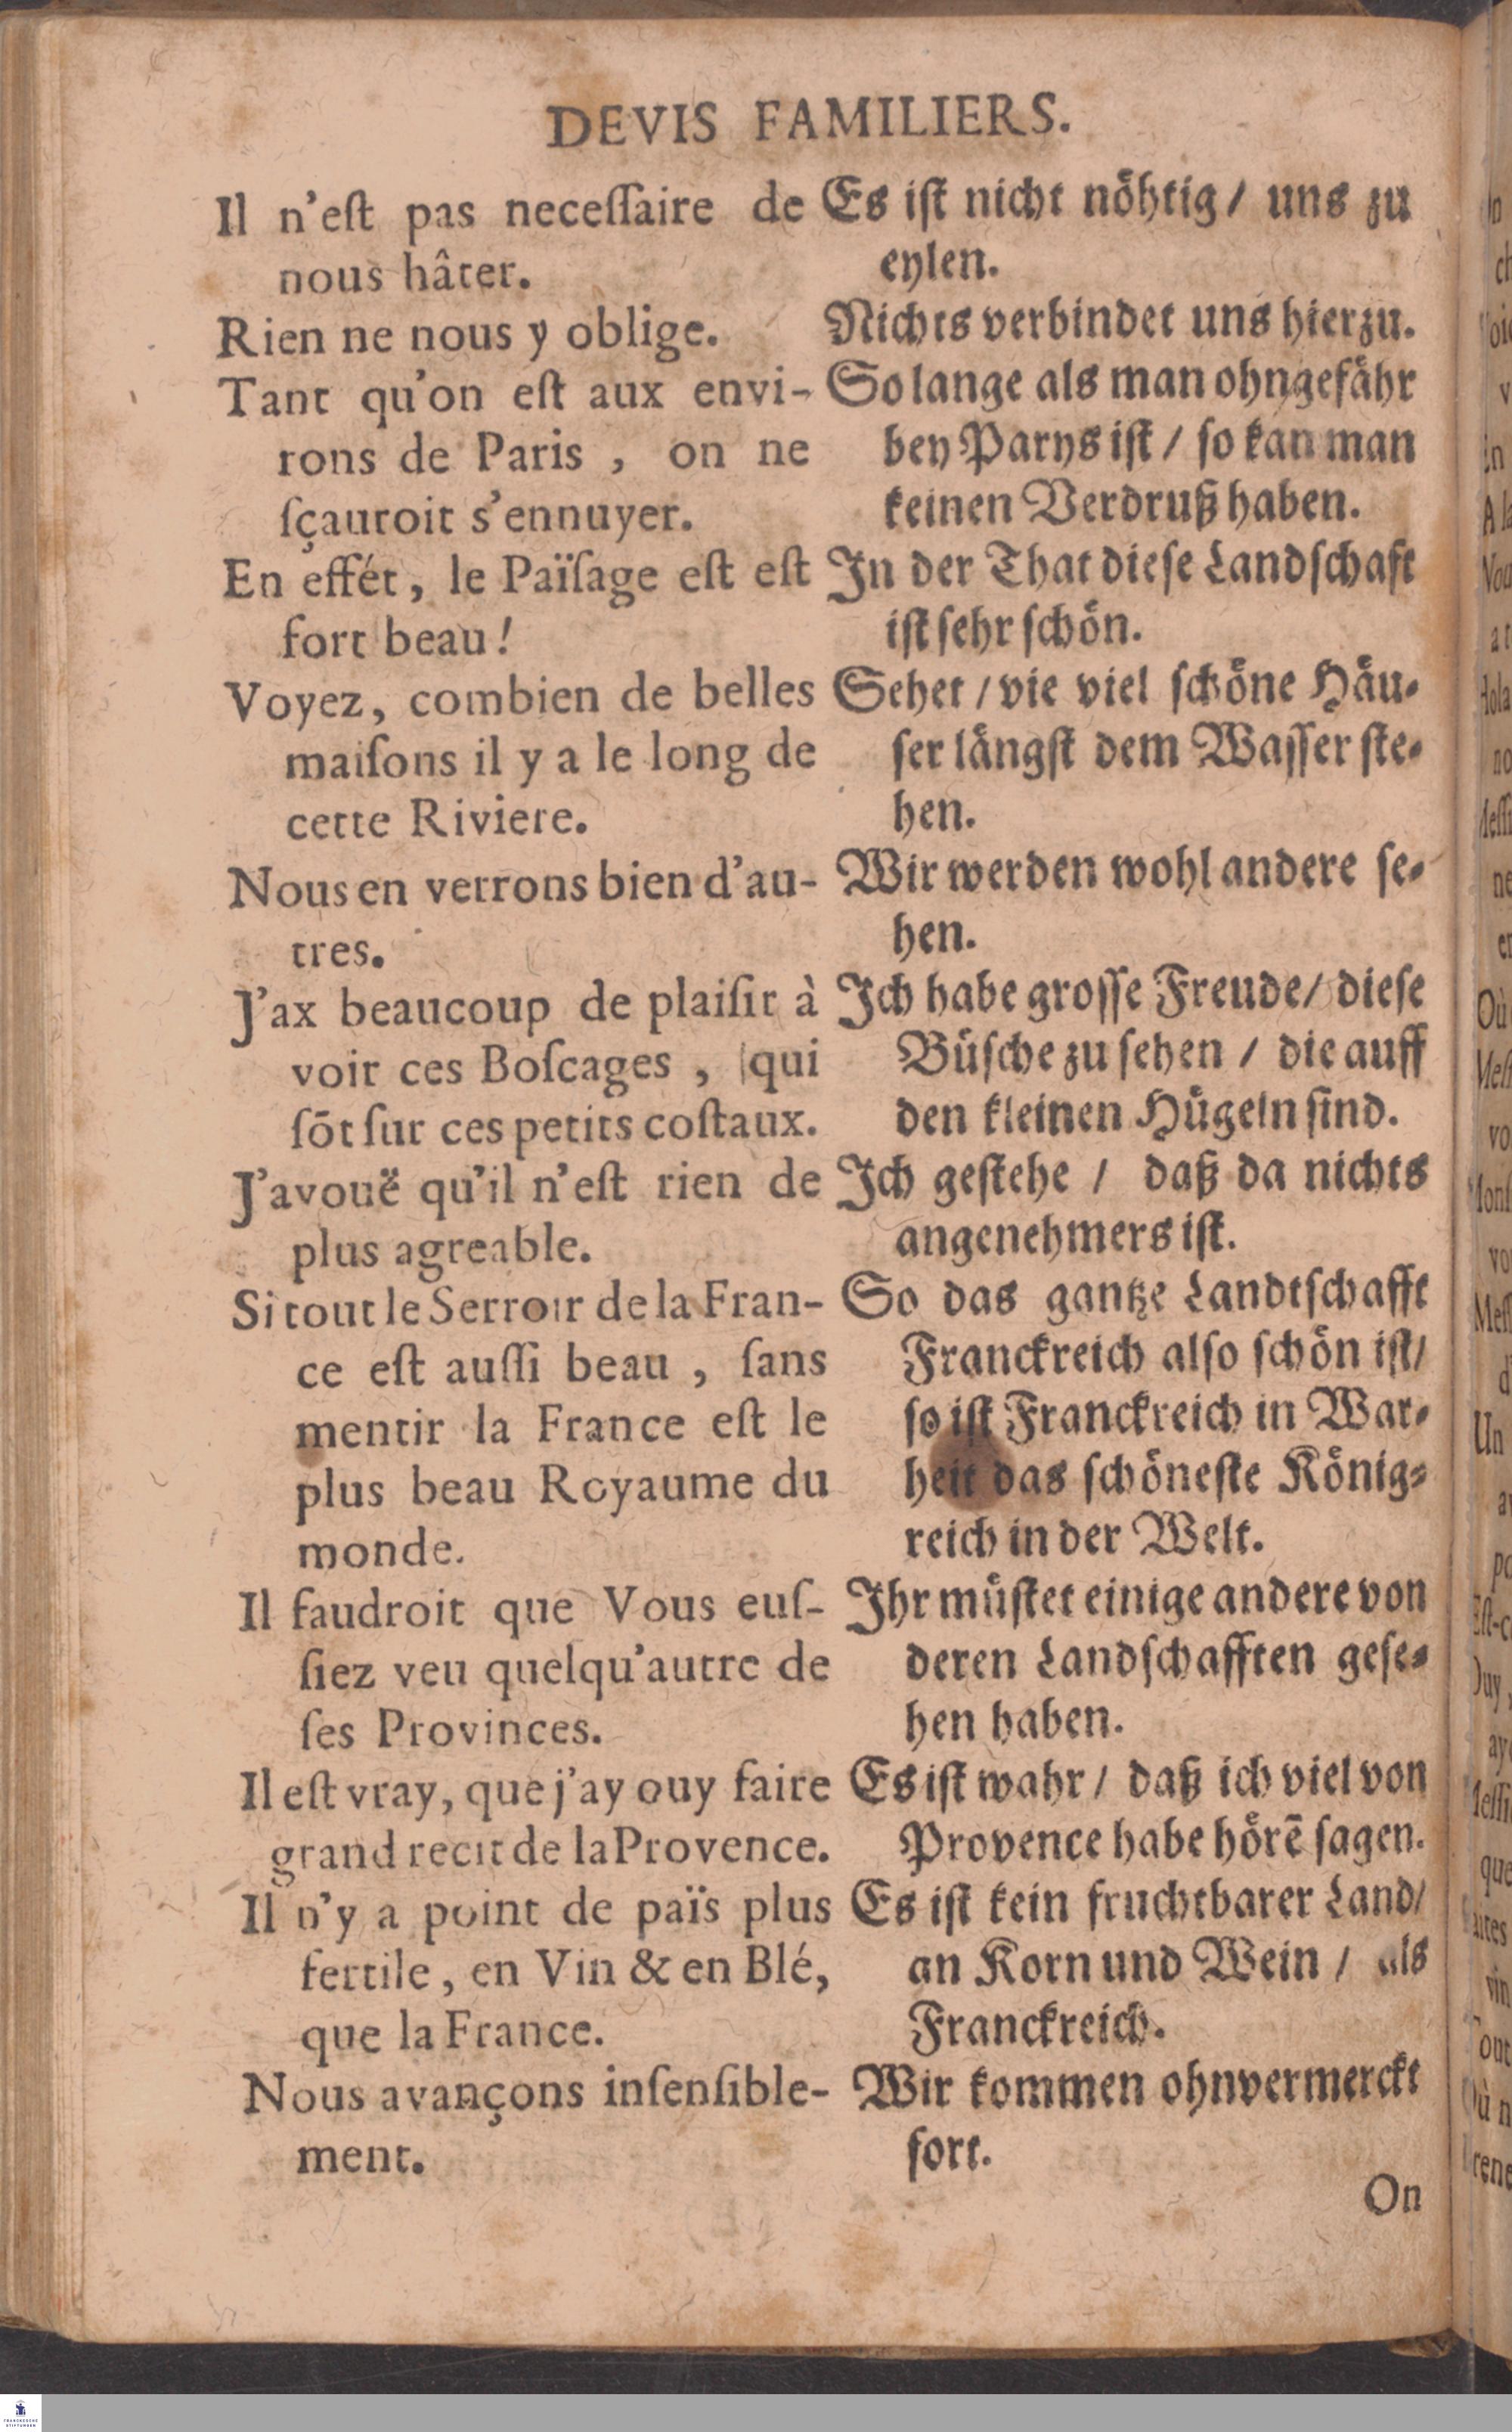 DEVIS FAMILIERS.
Il n'eſt pas neceſſaire de
nous hâter.
Rien ne nous y oblige.
Tant qu'on eſt aux envi-
rons de Paris , on ne
ſçauroit s'ennuyer.
En effét, le Païſage eſt eſt
fort beau!
Voyez, combien de belles
maiſons il y a le long de
cette Riviere.
Nous en verrons bien d'au-
tres.
J'ax beaucoup de plaiſir à
voir ces Boſcages , qui
ſōt ſur ces petits coſtaux.
J'avouë qu'il n'eſt rien de
plus agreable.
Si tout le Serroir de la Fran-
ce eſt auſſi beau , ſans
mentir la France eſt le
plus beau Royaume du
monde.
Il faudroit que Vous euſ-
ſiez veu quelqu'autre de
ſes Provinces.
Il eſt vray, que j'ay ouy faire
grand recit de la Provence.
Il n'y a point de païs plus
fertile, en Vin & en Blé,
que la France.
Nous avançons inſenſible-
ment.
Es iſt nicht nöhtig / uns zu
eylen.
Nichts verbindet uns hierzu.
So lange als man ohngefähr
bey Parys iſt / ſo kan man
keinen Verdruß haben.
In der That dieſe Landſchaft
iſt ſehr ſchön.
Sehet / vie viel ſchöne Häu-
ſer längſt dem Waſſer ſte-
hen.
Wir werden wohl andere ſe-
hen.
Ich habe groſſe Freude / dieſe
Büſche zu ſehen / die auff
den kleinen Hügeln ſind.
Ich geſtehe / daß da nichts
angenehmers iſt.
So das gantze Landtſchafft
Franckreich alſo ſchön iſt /
ſo iſt Franckreich in War-
heit das ſchöneſte König-
reich in der Welt.
Ihr müſtet einige andere von
deren Landſchafften geſe-
hen haben.
Es iſt wahr / daß ich viel von
Provence habe hörē ſagen.
Es iſt kein fruchtbarer Land /
an Korn und Wein / als
Franckreich.
Wir kommen ohnvermerckt
fort.
On
FRANCKESCHE
STIFTUNGEN